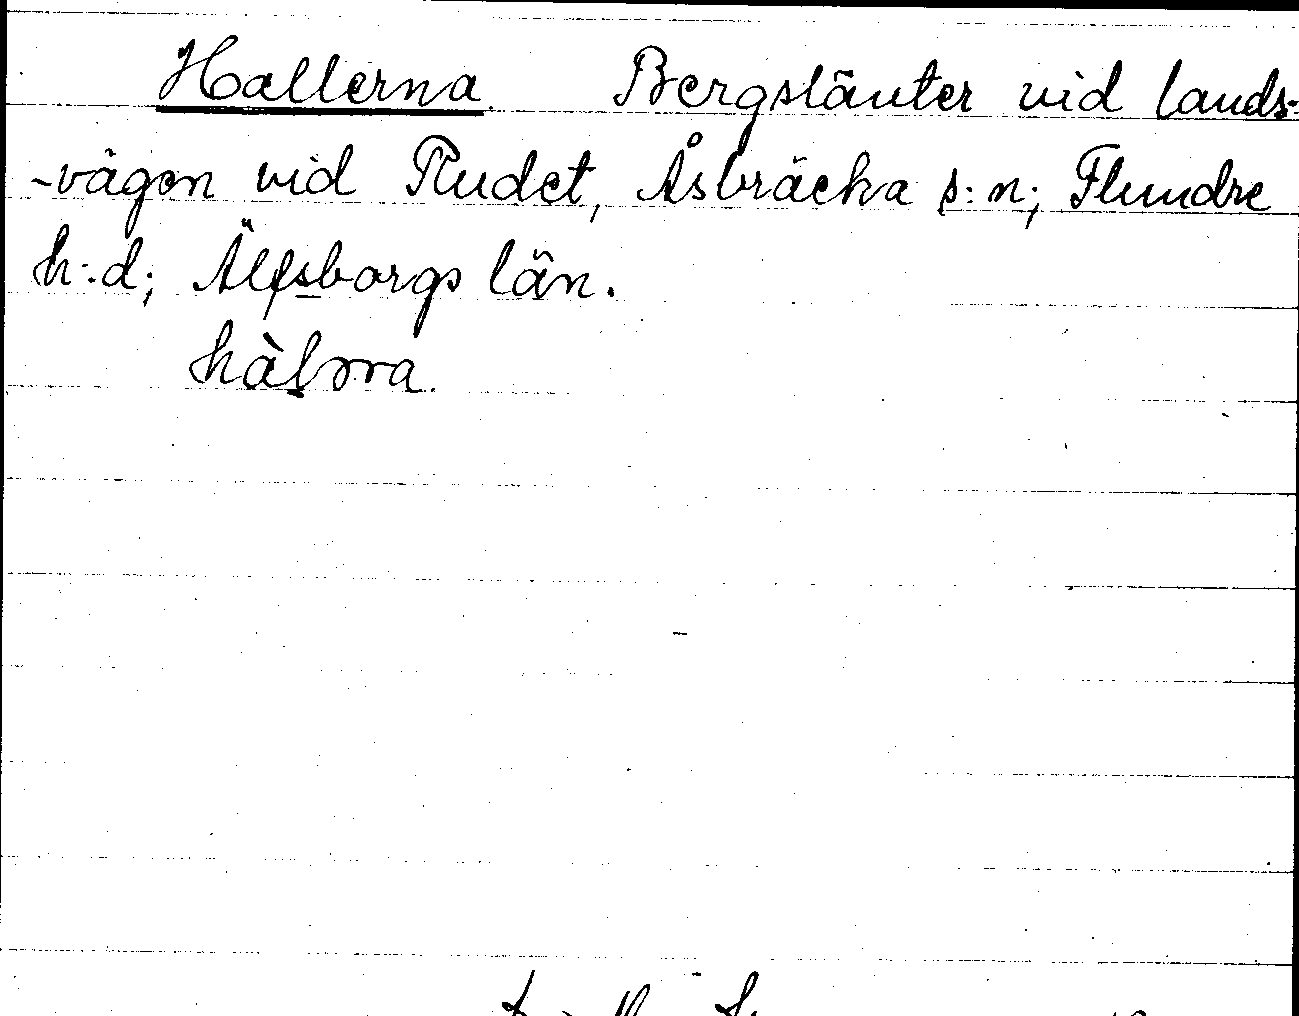 Hallerna. Bergslänter vid lands-
-vägen vid Rudet, Åsbräcka s:n; Flundre
h:d; Älfsborgs län.